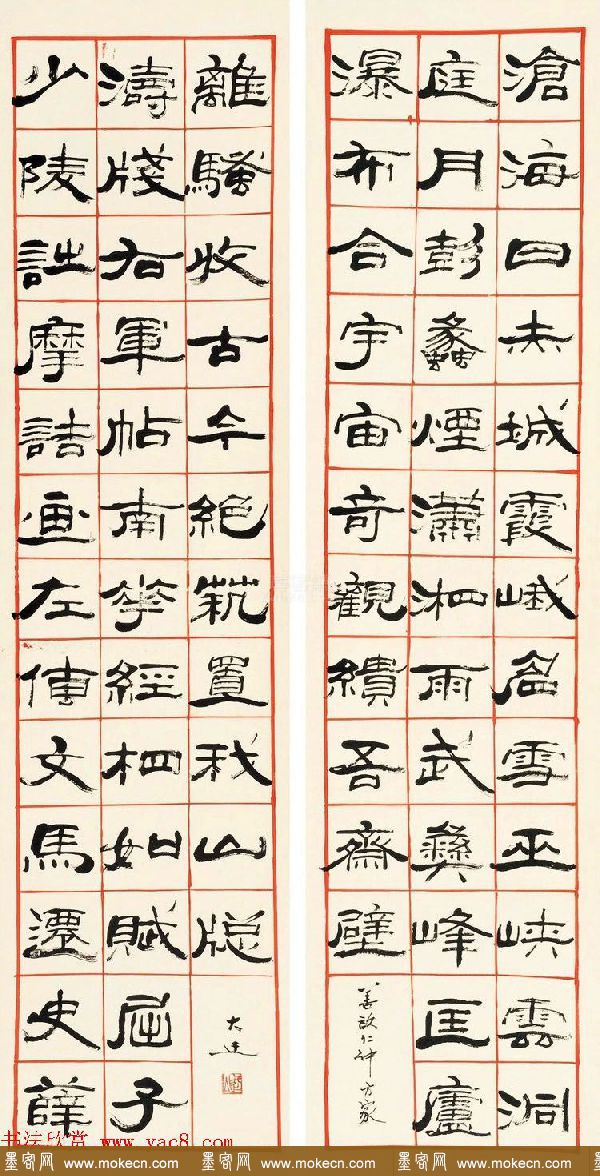 滄海日赤城霞峨嵋雪巫峽雲洞
庭月彭蠡煙瀟湘雨武彝峰匡廬
瀑布合宇宙奇觀繢吾齋壁
仁仲方家
少陵詩摩詰画左傳文馬遷史薛
濤牋右軍帖南華經相如賦屈子
離騷收古今絕藝置我山牕
书法欣赏 www.yac8.com
墨客网 www.mokecn.com 墨客网 www.mokecn.com 墨客网 www.mokecn.com